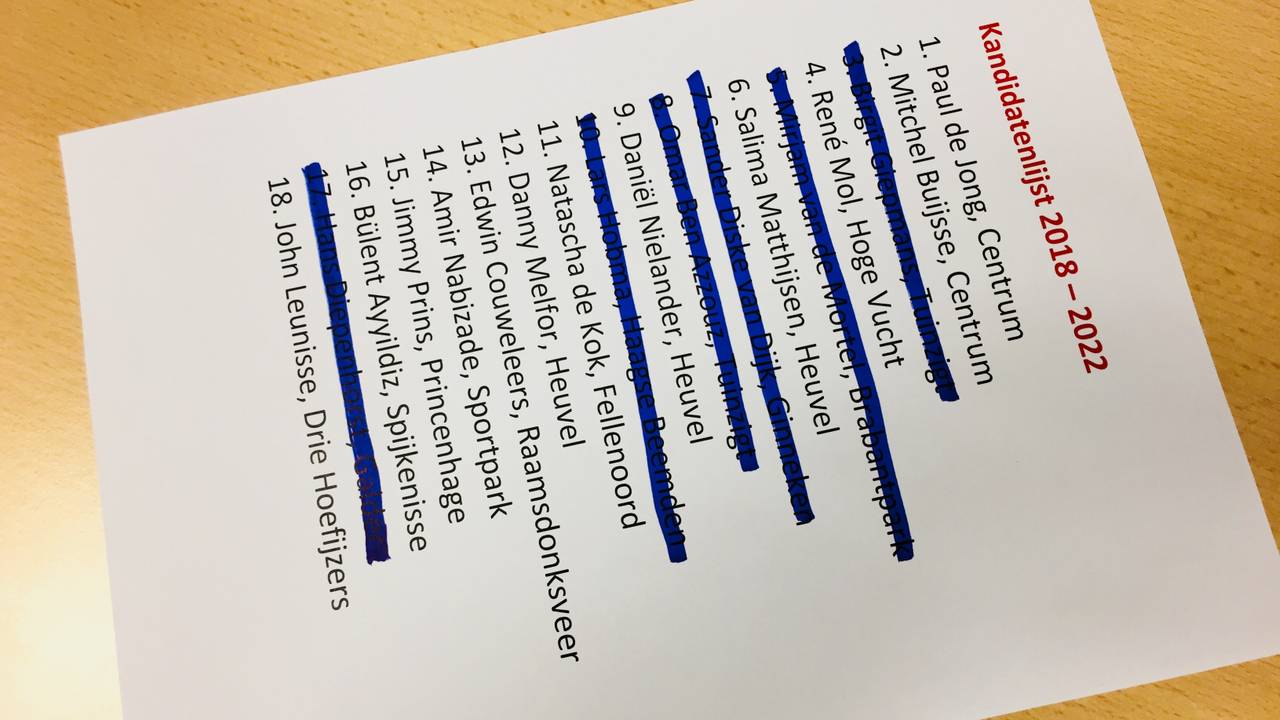 Kandidatenlijst 2018 – 2022
1. Paul de Jong, Centrum
2. Mitchel Buijsse, Centrum
3. Birgit Giepmans, Tuinzigt
4. René Mol, Hoge Vucht
5. Mirjam van de Mortel, Brabantpark
6. Salima Matthijsen, Heuvel
7. Sander Diske van Dijk, Ginneken
8. Omar Ben Azzouz, Tuinzigt
9. Daniël Nielander, Heuvel
10. Lars Hobma, Haagse Beemden
11. Natascha de Kok, Fellenoord
12. Danny Melfor, Heuvel
13. Edwin Couweleers, Raamsdonksveer
14. Amir Nabizade, Sportpark
15. Jimmy Prins, Princenhage
16. Bülent Ayyildiz, Spijkenisse
17. Hans Diepenhorst, Galder
18. John Leunisse, Drie Hoefijzers